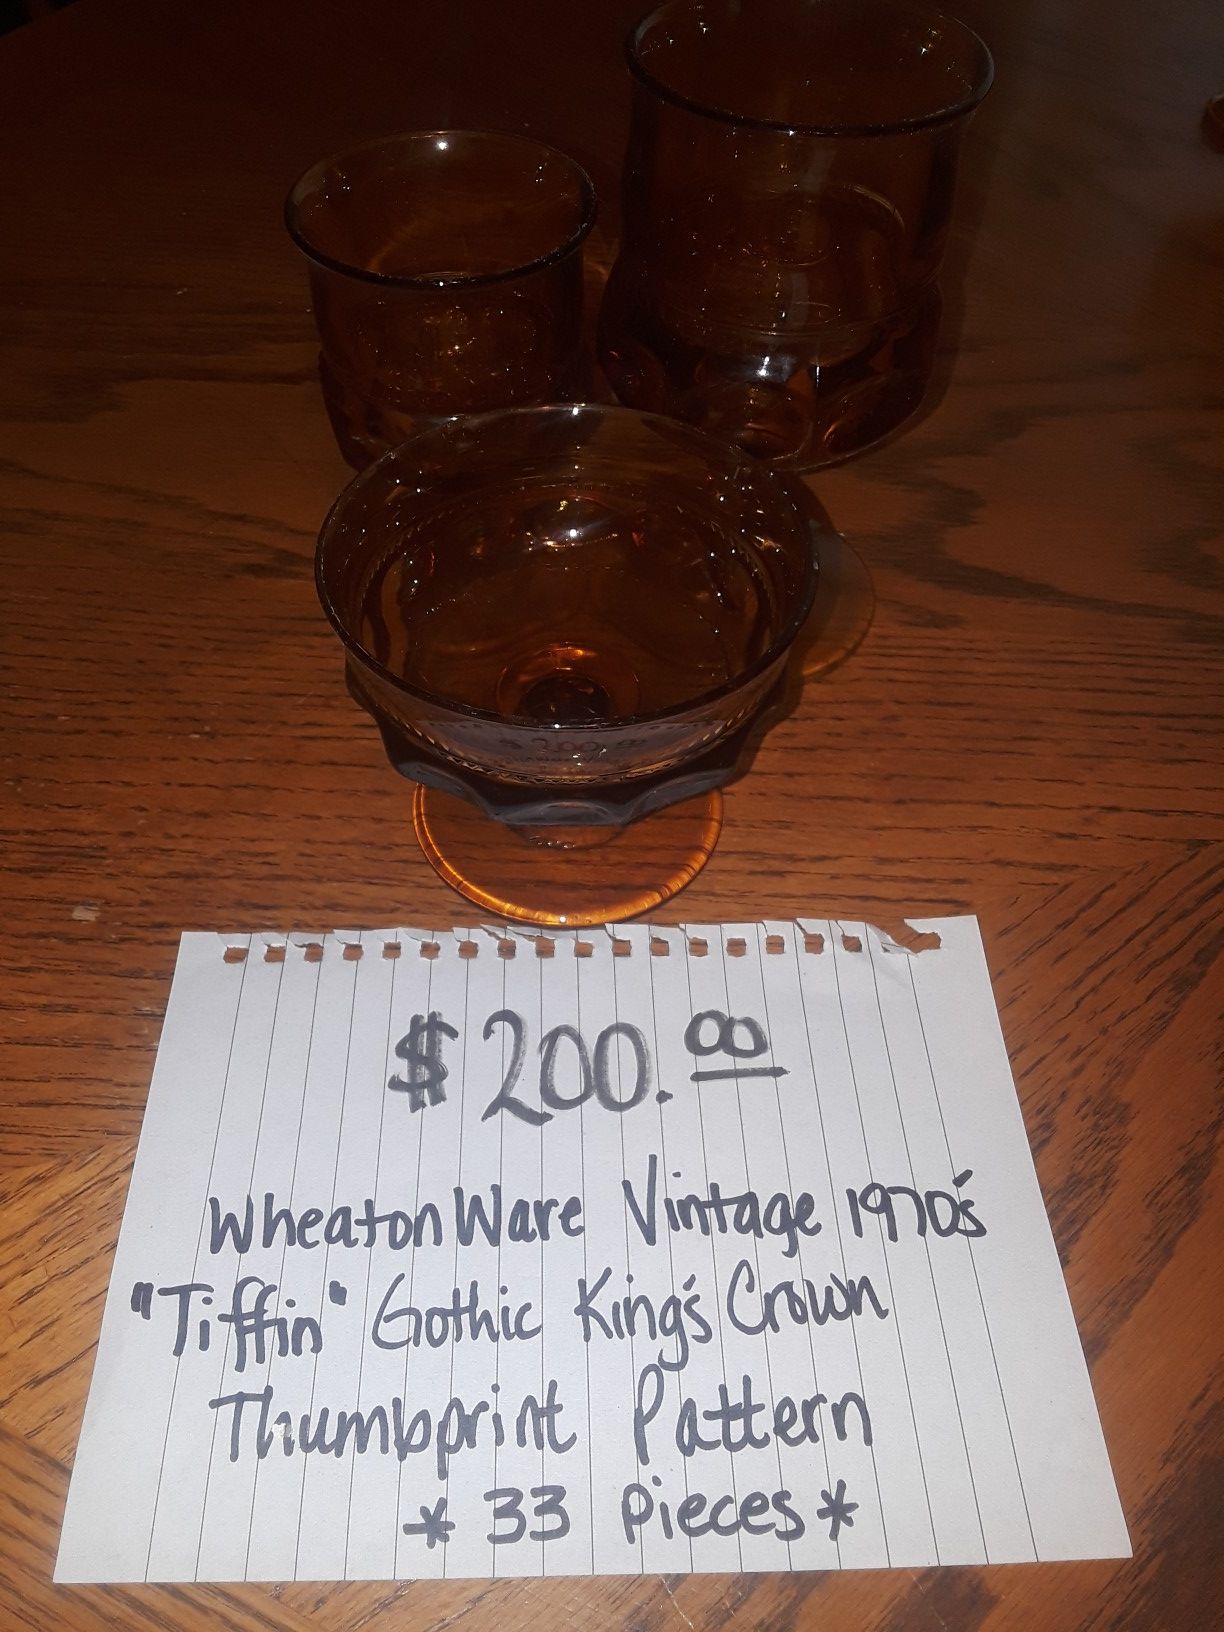 $200.00
Wheaton Ware Vintage 1970's
"Tiffin" Gothic King's Crown
Thumbprint Pattern
* 33 pieces *